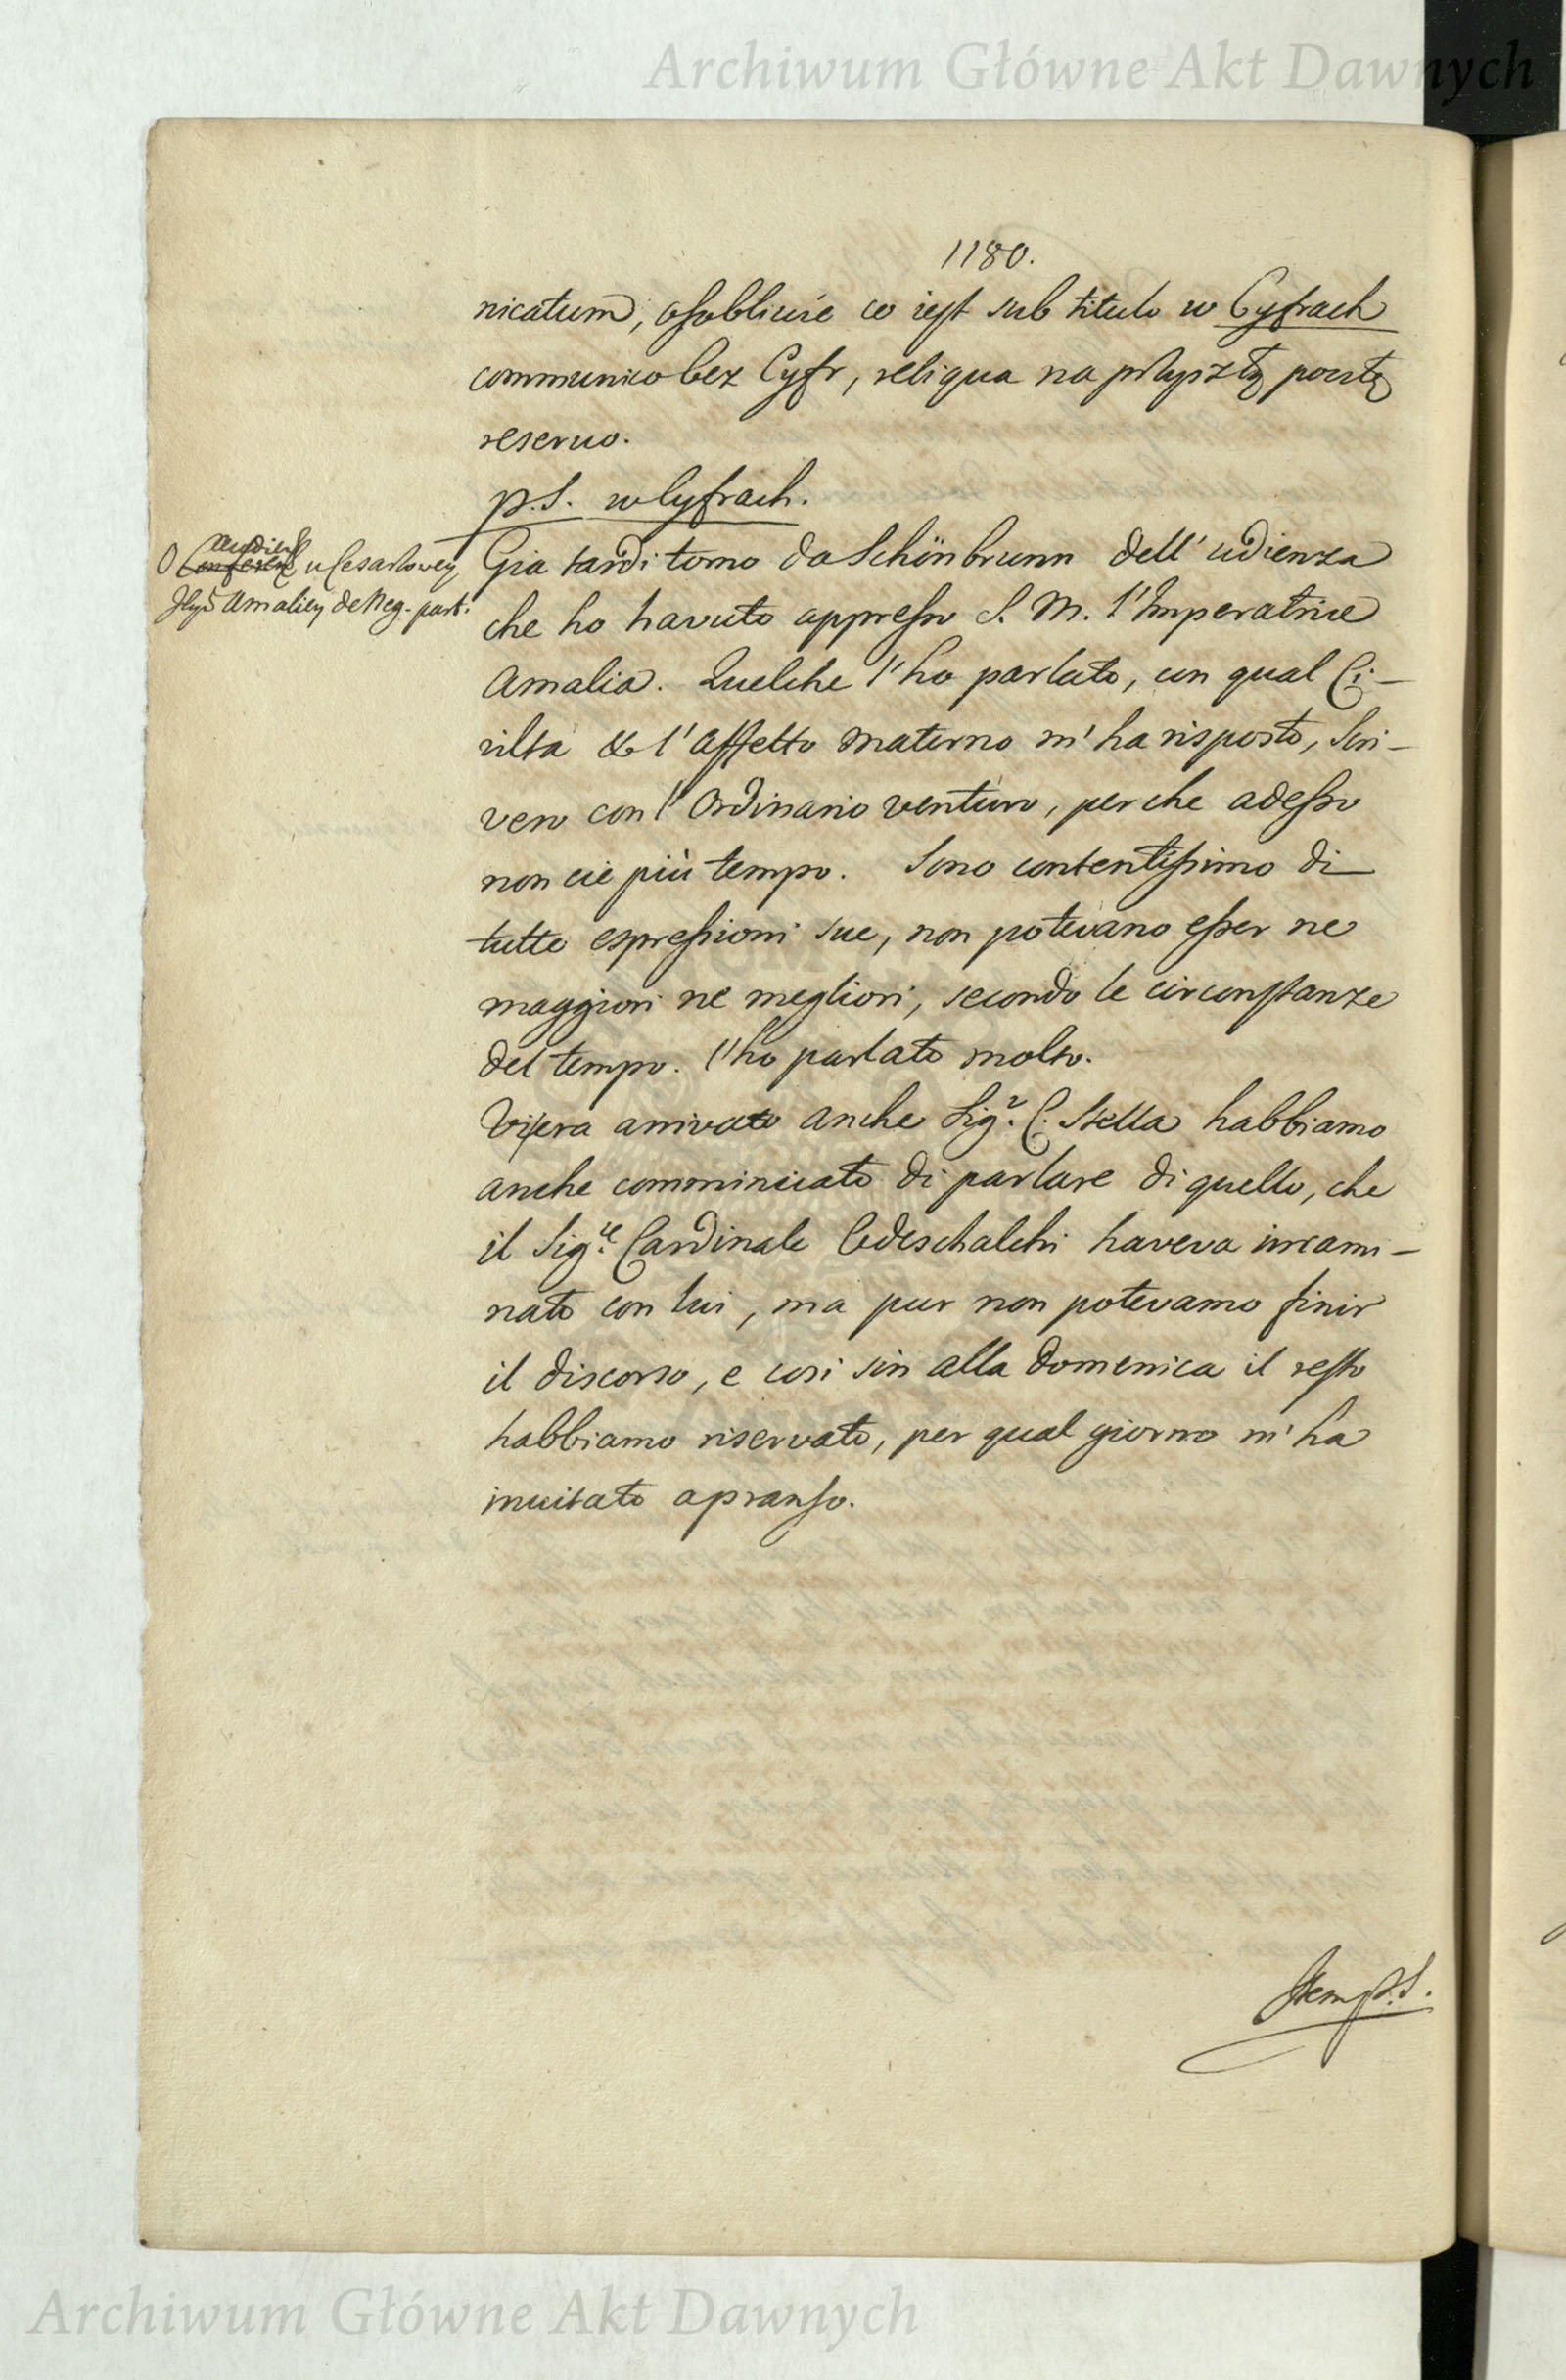 Archiwum Główne Akt Dawnych
1180.
nicatum, osobliwie co jest sub titulo w Cyfrach
communico bez Cyfr, reliqua na przyszłą pocztę
reservo.
p.S. w Cyfrach.
O Audien Conferen u Cesarlowey
Amaliey de Neg. part.
Gia tardi torno da Schönbrunn dell' udienza
che ho havuto appresso S. M. l'Imperatrice
Amalia. Quelche l'ho parlato, con qual Ci-
vilta & l'affetto materno m'ha risposto, scri-
vero con l'Ordinario venturo, perche adesso
non cié più tempo. Sono contentissimo di
tutte espressioni sue, non potevano esser ne
maggiori ne megliori, secondo le circonstanze
del tempo. l'ho parlato molto.
Vi era arrivato anche Sigr. C. Stella habbiamo
anche comminciato di parlare di quello, che
il Sigre. Cardinale Odeschalchi haveva incami-
nato con lui, ma pur non potevamo finir
il discorso, e cosi sin alla domenica il resto
habbiamo riservato, per qual giorno m'ha
invitato a pranso.
Item P.S.
Archiwum Główne Akt Dawnych